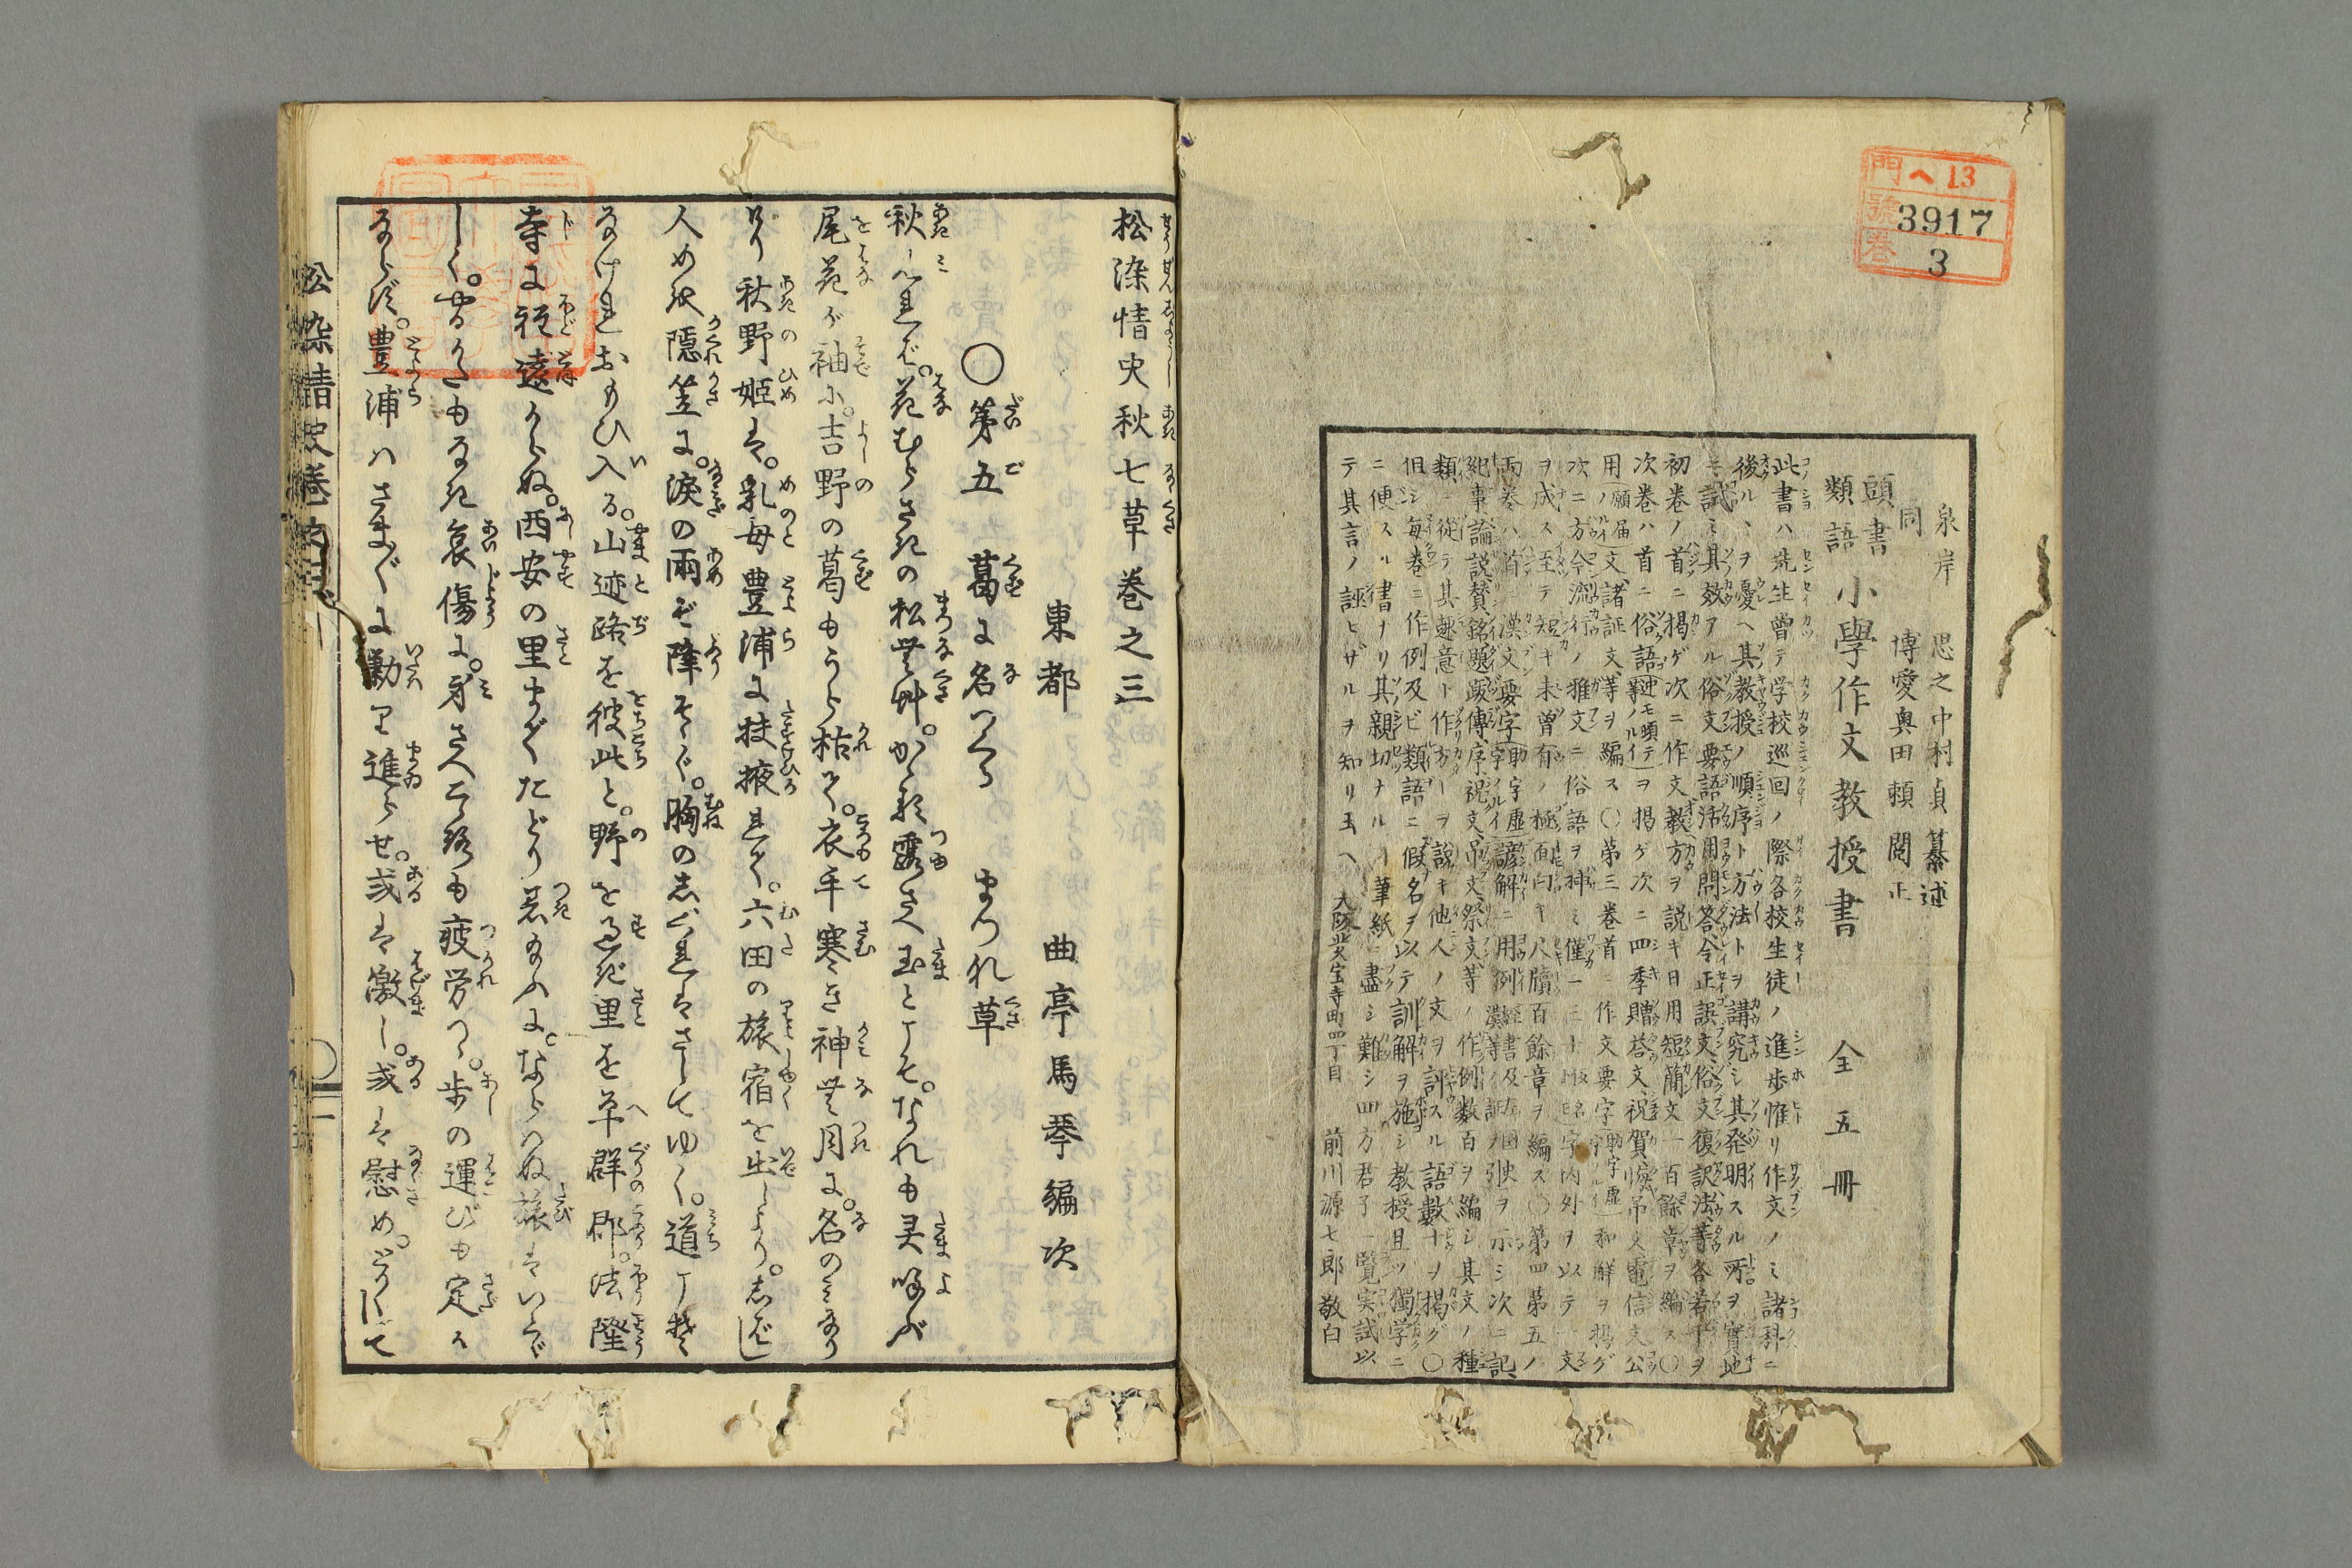 門ヘ13
號3917
巻3
泉岸 思之中村貞纂述
同 博愛奥田頼閲正
頭書類語 小學作文教授書 全五冊
此書ハ先生曾テ学校巡回ノ際各校生徒ノ進歩惟リ作文ノミ諸科ニ
後ルヽヲ憂ヘ其教授ノ順序ト方法トヲ講究シ其発明スル所ヲ實地
ニ試ミ其效アル俗文要語活用問答、令正誤文、俗文復訳法等各若干ヲ
初巻ノ首ニ掲ゲ次ニ作文教方ヲ説キ日用短簡文一百餘章ヲ編ス〇
次巻ハ首ニ俗語
用文諸証文等ヲ編ス〇第三巻首ニ作文要字
次ニ方今流行ノ雅文ニ俗語ヲ挿ミ僅一二十
ヲ成ス至テ短キ未曾有ノ極面白キ尺牘百餘章ヲ編ス〇第四第五ノ
両巻ハ首ニ漢文要字
紀事論説賛銘題跋傳序祝文、吊文、祭文等ノ作例数百ヲ編シ其文ノ種
類ニ従テ其趣意ト作方ーヲ説キ他人ノ文ヲ評スル語數十ヲ掲グ〇
但シ毎巻ニ作例及ビ類語ニ假名ヲ以テ訓解ヲ施シ教授且ツ獨学ニ
ニ便スル書ナリ其親切ナルー筆紙ニ盡シ難シ四方君子一覧実試以
テ其言ノ誣ヒザルヲ知リ玉ヘ 大阪北久宝寺町四丁目 前川源七郎敬白
松染情史秋七草巻之三
東都 曲亭馬琴編次
〇第五 葛に名つくる まつれ草
秋しふれば。花むらさきの松無艸。かゝる露さへ玉とこそ。なれも灵呼ふ
尾花が袖に。吉野の葛もうら枯て。衣手寒き神無月に。名のみなり
けり秋野姫は。乳母豊浦に扶掖れて。六田の旅宿を出しより。志ばし
人め必隠笠に。涙の雨ぞ降そゝぐ。胸の志ぐれはさしてゆく。道こそ
なけれおもひ入る。山迹路を彼此と。野を過ぎ里を平群郡。法隆
寺に程遠からぬ。西安の里までたどり着給ふに。ならはぬ旅はいとゞ
しく。やるかたもなき哀傷に。身さへこゝろも疲労つゝ。歩の運びも定か
ならず。豊浦はさま〲に勦り進らせ。或は激し。或は慰め。とかくして
松染情史巻之三